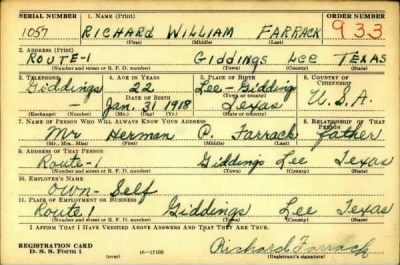 SERIAL NUMBER 1. NAME (Print) ORDER NUMBER
1057 RICHARD WILLIAM FARRACK 933
(First) (Middle) (Last)
2. ADDRESS (Print)
ROUTE-1 GIDDINGS LEE TEXAS
(Number and street or R. F. D. number) (Town) (County) (State)
3. TELEPHONE 4. AGE IN YEARS 5. PLACE OF BIRTH 6. COUNTRY OF CITIZENSHIP
Giddings 22 Lee-Giddings
DATE OF BIRTH (Town or county)
- Jan. 31 1918 Texas U.S.A.
(Exchange) (Number) (Mo.) (Day) (Yr.) (State or country)
7. NAME OF PERSON WHO WILL ALWAYS KNOW YOUR ADDRESS 8. RELATIONSHIP OF THAT PERSON
Mr Herman P. Farrack father
(Mr., Mrs., Miss) (First) (Middle) (Last)
9. ADDRESS OF THAT PERSON
Route-1 Giddings Lee Texas
(Number and street or R. F. D. number) (Town) (County) (State)
10. EMPLOYER'S NAME
Own-Self
11. PLACE OF EMPLOYMENT OR BUSINESS
Route 1 Giddings Lee Texas
(Number and street or R. F. D. number) (Town) (County) (State)
I AFFIRM THAT I HAVE VERIFIED ABOVE ANSWERS AND THAT THEY ARE TRUE.
REGISTRATION CARD
D. S. S. Form 1 (over) Richard Farrack
(Registrant's signature)